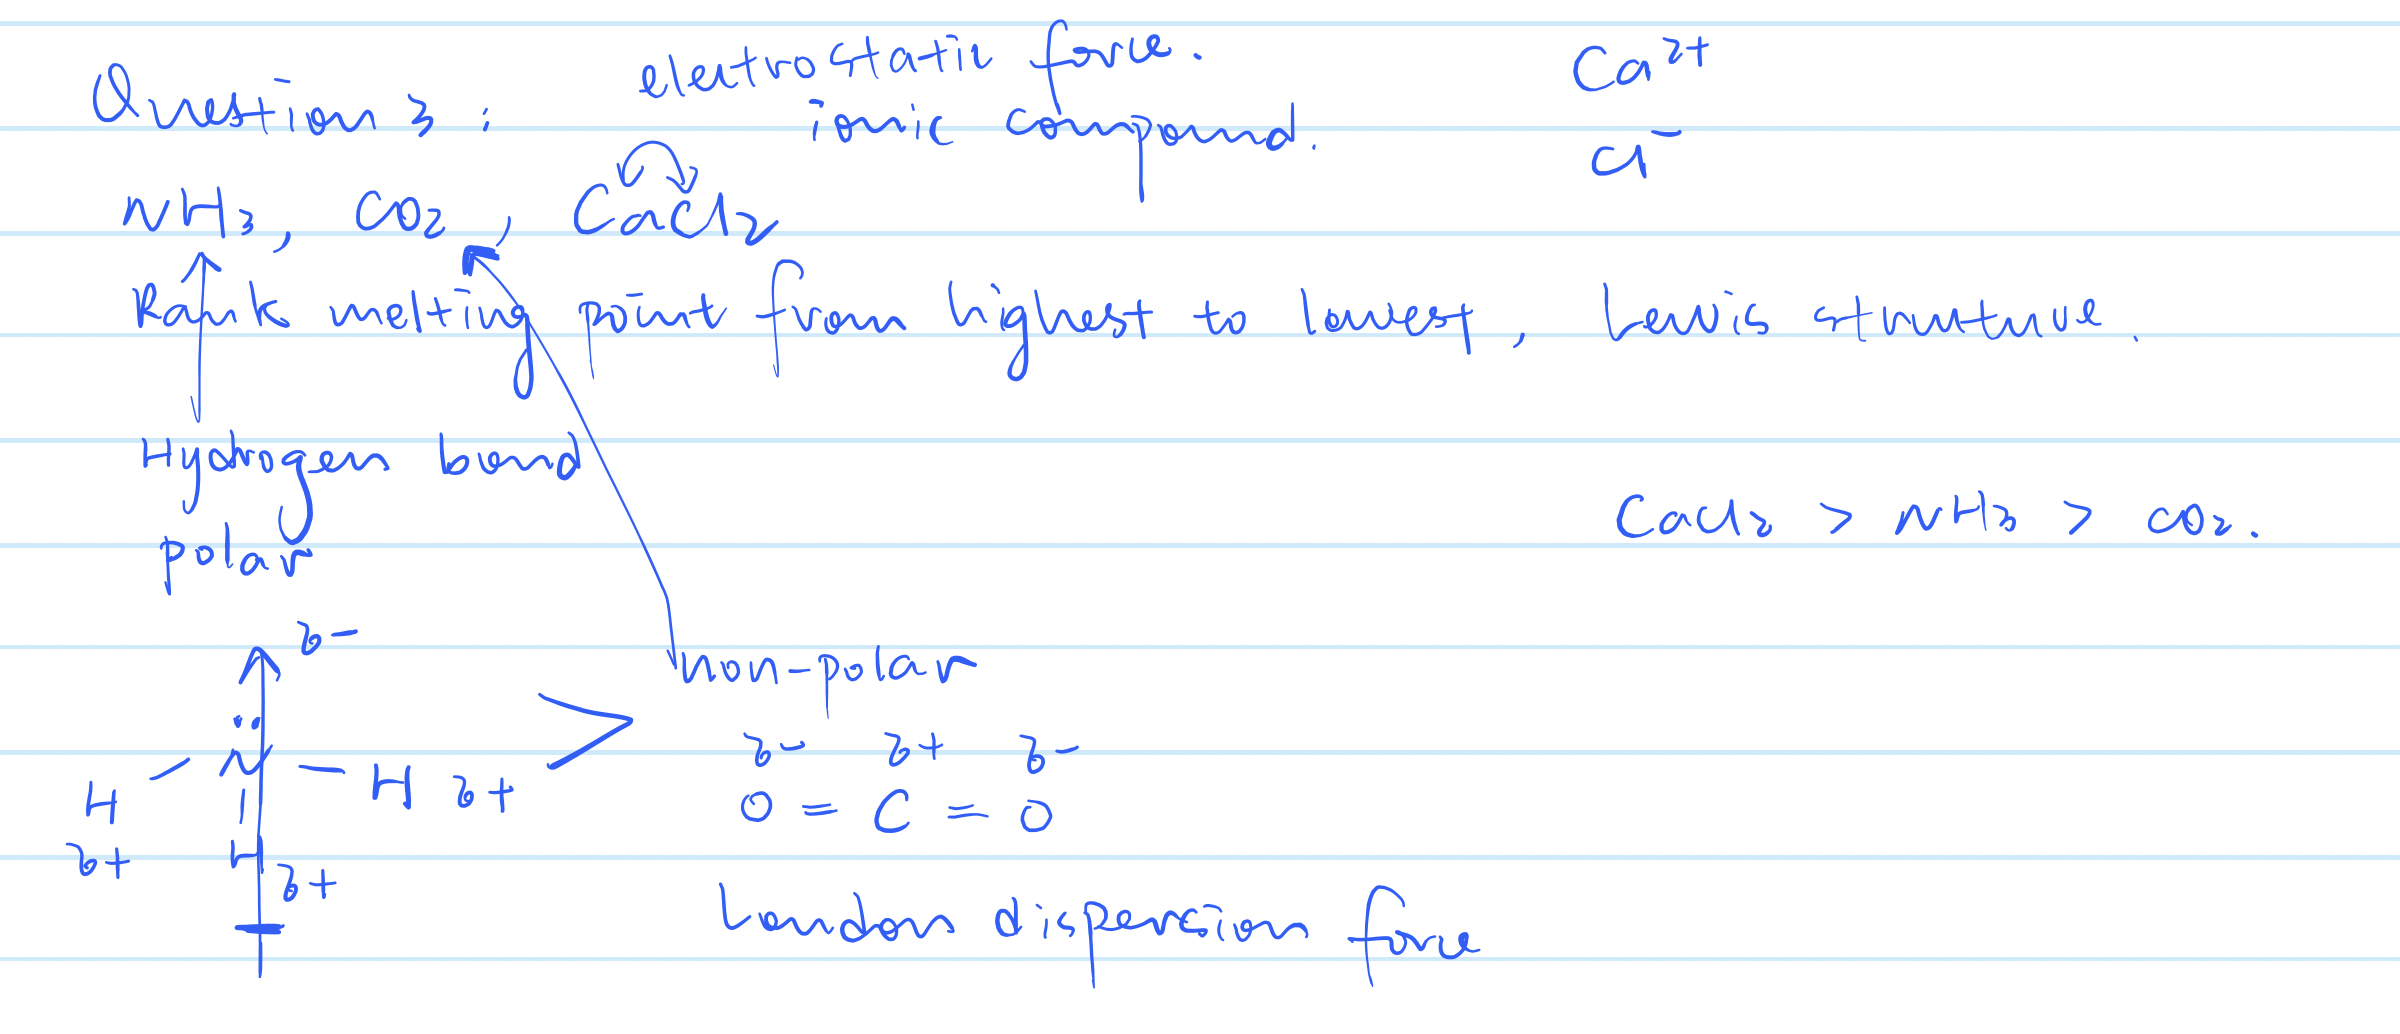 electrostatic force.
Question 3 :
ionic compound.
Ca²⁺
Cl⁻
NH₃, CO₂, CaCl₂
Rank melting point from highest to lowest, Lewis structure.
Hydrogen bond
polar
CaCl₂ > NH₃ > CO₂.
δ-
non-polar
N
H
H δ+
δ+
H
δ+
>
δ- δ+ δ-
O = C = O
London dispersion force